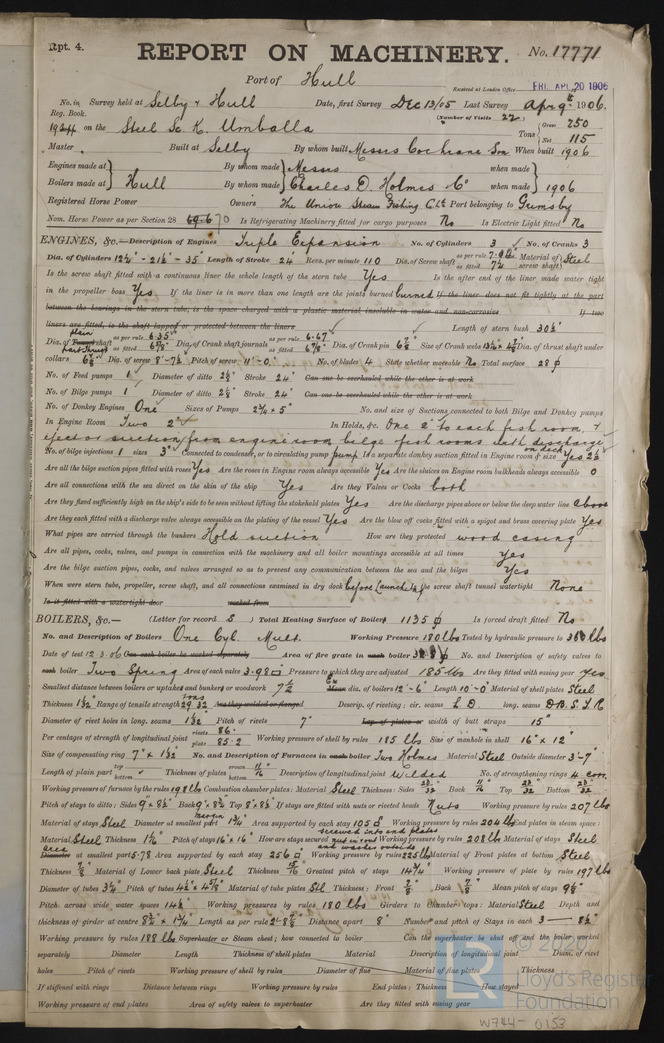 Rpt. 4.
REPORT ON MACHINERY.
No. 17771
Port of Hull
Received at London Office FRI. APL. 20 1906
No. in Survey held at Selby & Hull Date, first Survey Dec 13/05 Last Survey Apr 9th 1906.
Reg. Book. (Number of Visits 22)
on the Steel Sc. K. Umballa Tons Gross 250 Net 115
Master Built at Selby By whom built Messrs Cochrane Son When built 1906
Engines made at Hull By whom made Messrs Charles D. Holmes & Co when made 1906
Boilers made at By whom made when made
Registered Horse Power Owners The Union Steam Fishing C. Ld. Port belonging to Grimsby
Nom. Horse Power as per Section 28 70 Is Refrigerating Machinery fitted for cargo purposes No Is Electric Light fitted No
ENGINES, &c.—Description of Engines Triple Expansion No. of Cylinders 3 No. of Cranks 3
Dia. of Cylinders 12¼" - 21½" - 35" Length of Stroke 24 Revs. per minute 110 Dia. of Screw shaft as per rule as fitted 7¼ Material of screw shaft Steel
Is the screw shaft fitted with a continuous liner the whole length of the stern tube Yes Is the after end of the liner made water tight
in the propeller boss Yes If the liner is in more than one length are the joints burned burned If the liner does not fit tightly at the part
between the bearings in the stern tube, is the space charged with a plastic material insoluble in water and non-corrosive If two
liners are fitted, is the shaft lapped or protected between the liners Length of stern bush 30½"
Dia. of Tunnel shaft as per rule 6.35 as fitted 6⅞" Dia. of Crank shaft journals as per rule 6.67 as fitted 6⅞" Dia. of Crank pin 6⅞" Size of Crank webs Dia. of thrust shaft under
collars 6⅞" Dia. of screw 8'-7½ Pitch of screw 11'-0" No. of blades 4 State whether moveable No Total surface 28
No. of Feed pumps 1 Diameter of ditto 2½" Stroke 24" Can one be overhauled while the other is at work
No. of Bilge pumps 1 Diameter of ditto 2½" Stroke 24" Can one be overhauled while the other is at work
No. of Donkey Engines One Sizes of Pumps 2¾ × 5" No. and size of Suctions connected to both Bilge and Donkey pumps
In Engine Room Two 2" In Holds, &c. One 2" to each fish room, &
ejector suction from engine room bilge & fish rooms with discharge on deck
No. of bilge injections 1 sizes 3" Connected to condenser, or to circulating pump pump Is a separate donkey suction fitted in Engine room & size Yes 2½
Are all the bilge suction pipes fitted with roses Yes Are the roses in Engine room always accessible Yes Are the sluices on Engine room bulkheads always accessible 0
Are all connections with the sea direct on the skin of the ship Yes Are they Valves or Cocks both
Are they fixed sufficiently high on the ship's side to be seen without lifting the stokehold plates Yes Are the discharge pipes above or below the deep water line above
Are they each fitted with a discharge valve always accessible on the plating of the vessel Yes Are the blow off cocks fitted with a spigot and brass covering plate Yes
What pipes are carried through the bunkers Hold suction How are they protected wood casing
Are all pipes, cocks, valves, and pumps in connection with the machinery and all boiler mountings accessible at all times yes
Are the bilge suction pipes, cocks, and valves arranged so as to prevent any communication between the sea and the bilges Yes
When were stern tube, propeller, screw shaft, and all connections examined in dry dock before launching Is the screw shaft tunnel watertight None
Is it fitted with a watertight door worked from
BOILERS, &c.— (Letter for record S) Total Heating Surface of Boilers 1135 Is forced draft fitted No
No. and Description of Boilers One Cyl. Mult. Working Pressure 180 lbs Tested by hydraulic pressure to 360 lbs
Date of test 12.3.06 Can each boiler be worked separately Area of fire grate in each boiler No. and Description of safety valves to
each boiler Two Spring Area of each valve 3.98 Pressure to which they are adjusted 185 lbs Are they fitted with easing gear yes
Smallest distance between boilers or uptakes and bunkers or woodwork 7½ Mean dia. of boilers 12'-6" Length 10'-0" Material of shell plates Steel
Thickness 1 5/32 Range of tensile strength 29.32 tons Are they welded or flanged Descrip. of riveting: cir. seams L. D. long. seams D.B.S.T.R
Diameter of rivet holes in long. seams 1 5/32 Pitch of rivets 7" Lap of plates or width of butt straps 15"
Per centages of strength of longitudinal joint rivets 86 plate 85.2 Working pressure of shell by rules 185 lbs Size of manhole in shell 16" × 12"
Size of compensating ring No. and Description of Furnaces in each boiler Two Holmes Material Steel Outside diameter 3'-7"
Length of plain part top bottom Thickness of plates crown bottom 11/16 Description of longitudinal joint welded No. of strengthening rings 4 corr.
Working pressure of furnace by the rules 198 lbs Combustion chamber plates: Material Steel Thickness: Sides Back Top Bottom
Pitch of stays to ditto: Sides Back Top If stays are fitted with nuts or riveted heads Nuts Working pressure by rules 207 lbs
Material of stays Steel Diameter at smallest part Area supported by each stay 105 Working pressure by rules 204 lbs End plates in steam space:
Material Steel Thickness Pitch of stays 16" × 16" How are stays secured screwed into end plates nut in & out and washers outside Working pressure by rules 208 lbs Material of stays Steel
Area Diameter at smallest part 5.78 Area supported by each stay 256 Working pressure by rules 225 lbs Material of Front plates at bottom Steel
Thickness ⅞" Material of Lower back plate Steel Thickness Greatest pitch of stays 14¼" Working pressure of plate by rules 197 lbs
Diameter of tubes 3¼" Pitch of tubes Material of tube plates Stl Thickness: Front ⅞" Back ⅞" Mean pitch of stays
Pitch across wide water spaces 14½" Working pressures by rules 180 lbs Girders to Chamber tops: Material Steel Depth and
thickness of girder at centre Length as per rule Distance apart 8" Number and pitch of Stays in each 3
Working pressure by rules 188 lbs Superheater or Steam chest; how connected to boiler Can the superheater be shut off and the boiler worked
separately Diameter Length Thickness of shell plates Material Description of longitudinal joint Diam. of rivet
holes Pitch of rivets Working pressure of shell by rules Diameter of flue Material of flue plates Thickness
If stiffened with rings Distance between rings Working pressure by rules End plates: Thickness How stayed
Working pressure of end plates Area of safety valves to superheater Are they fitted with easing gear
© 2020
LR
Lloyd's Register
Foundation
W744-0153